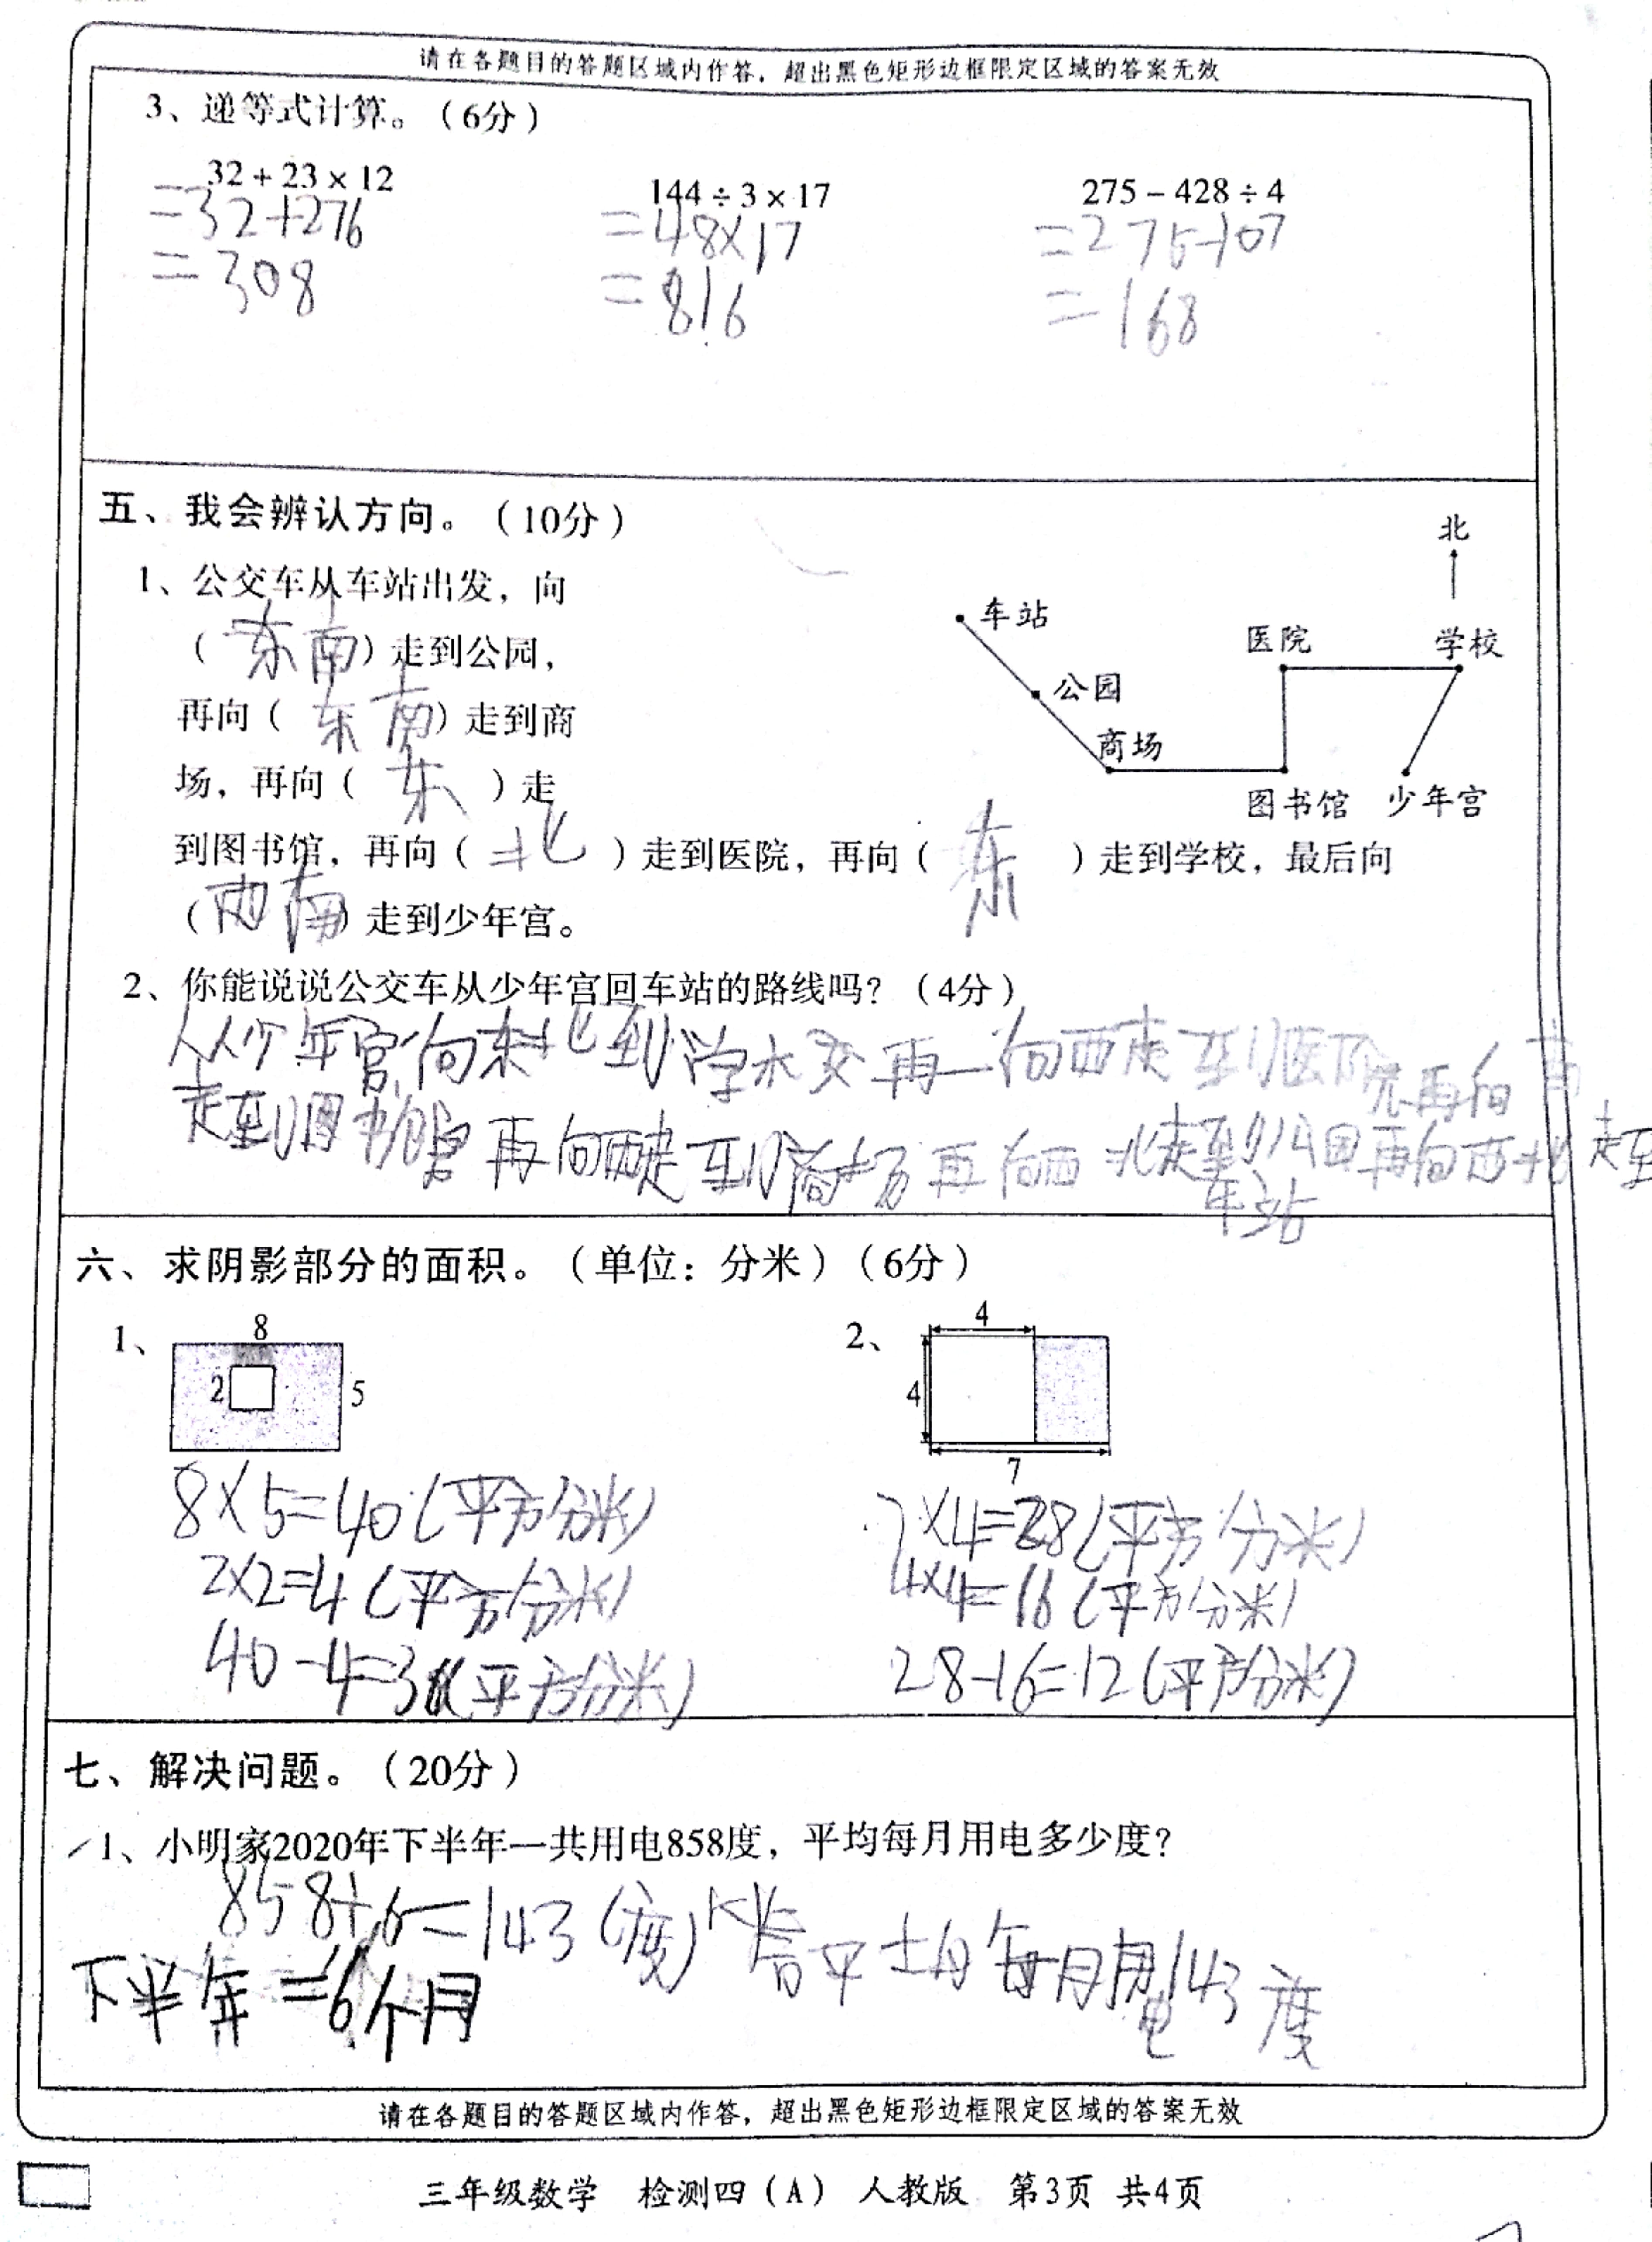 请在各题目的答题区域内作答，超出黑色矩形边框限定区域的答案无效
3、递等式计算。（6分）
32+23×12 144÷3×17 275-428÷4
=32+276 =48×17 =275-107
=308 =816 =168
五、我会辨认方向。（10分）
北
1、公交车从车站出发，向
（东南）走到公园，
再向（东南）走到商
场，再向（东）走
到图书馆，再向（北）走到医院，再向（东）走到学校，最后向
（西南）走到少年宫。
车站
公园
商场
医院
学校
图书馆 少年宫
2、你能说说公交车从少年宫回车站的路线吗？（4分）
从少年宫向东北到学校再向西走到医院再向南
走到图书馆再向西走到商场再向西北走到公园再向西北走到
车站
六、求阴影部分的面积。（单位：分米）（6分）
1、 8 2 5
2、 4 4 7
8×5=40(平方分米) 7×4=28(平方分米)
2×2=4(平方分米) 4×4=16(平方分米)
40-4=36(平方分米) 28-16=12(平方分米)
七、解决问题。（20分）
1、小明家2020年下半年一共用电858度，平均每月用电多少度？
858÷6=143(度) 答平均每月用电143度
下半年=6个月
请在各题目的答题区域内作答，超出黑色矩形边框限定区域的答案无效
三年级数学 检测四（A） 人教版 第3页 共4页